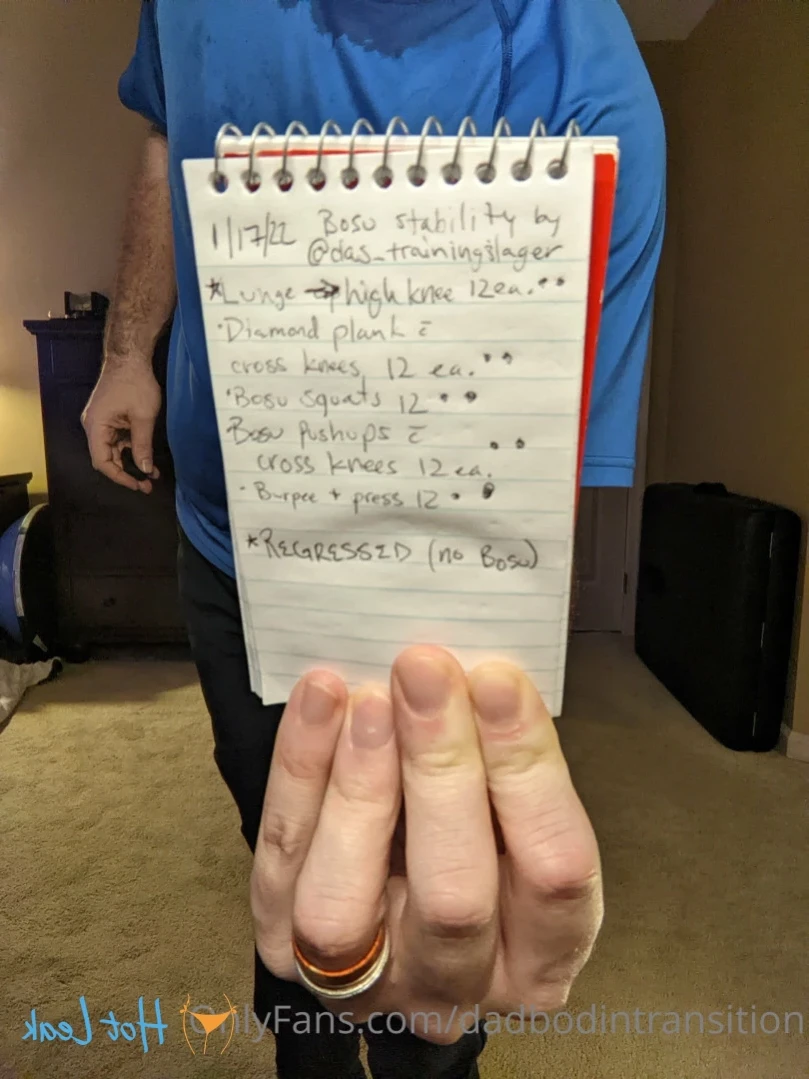 1/17/22 Bosu stability by
@das_trainingslager
*Lunge → high knee 12ea. • •
• Diamond plank c̄
cross knees, 12 ea. • •
• Bosu squats 12 • •
Bosu Pushups c̄ • •
cross knees 12 ea.
• Burpee + press 12 • •
*REGRESSED (no Bosu)
Hot Leak
OnlyFans.com/dadbodintransition